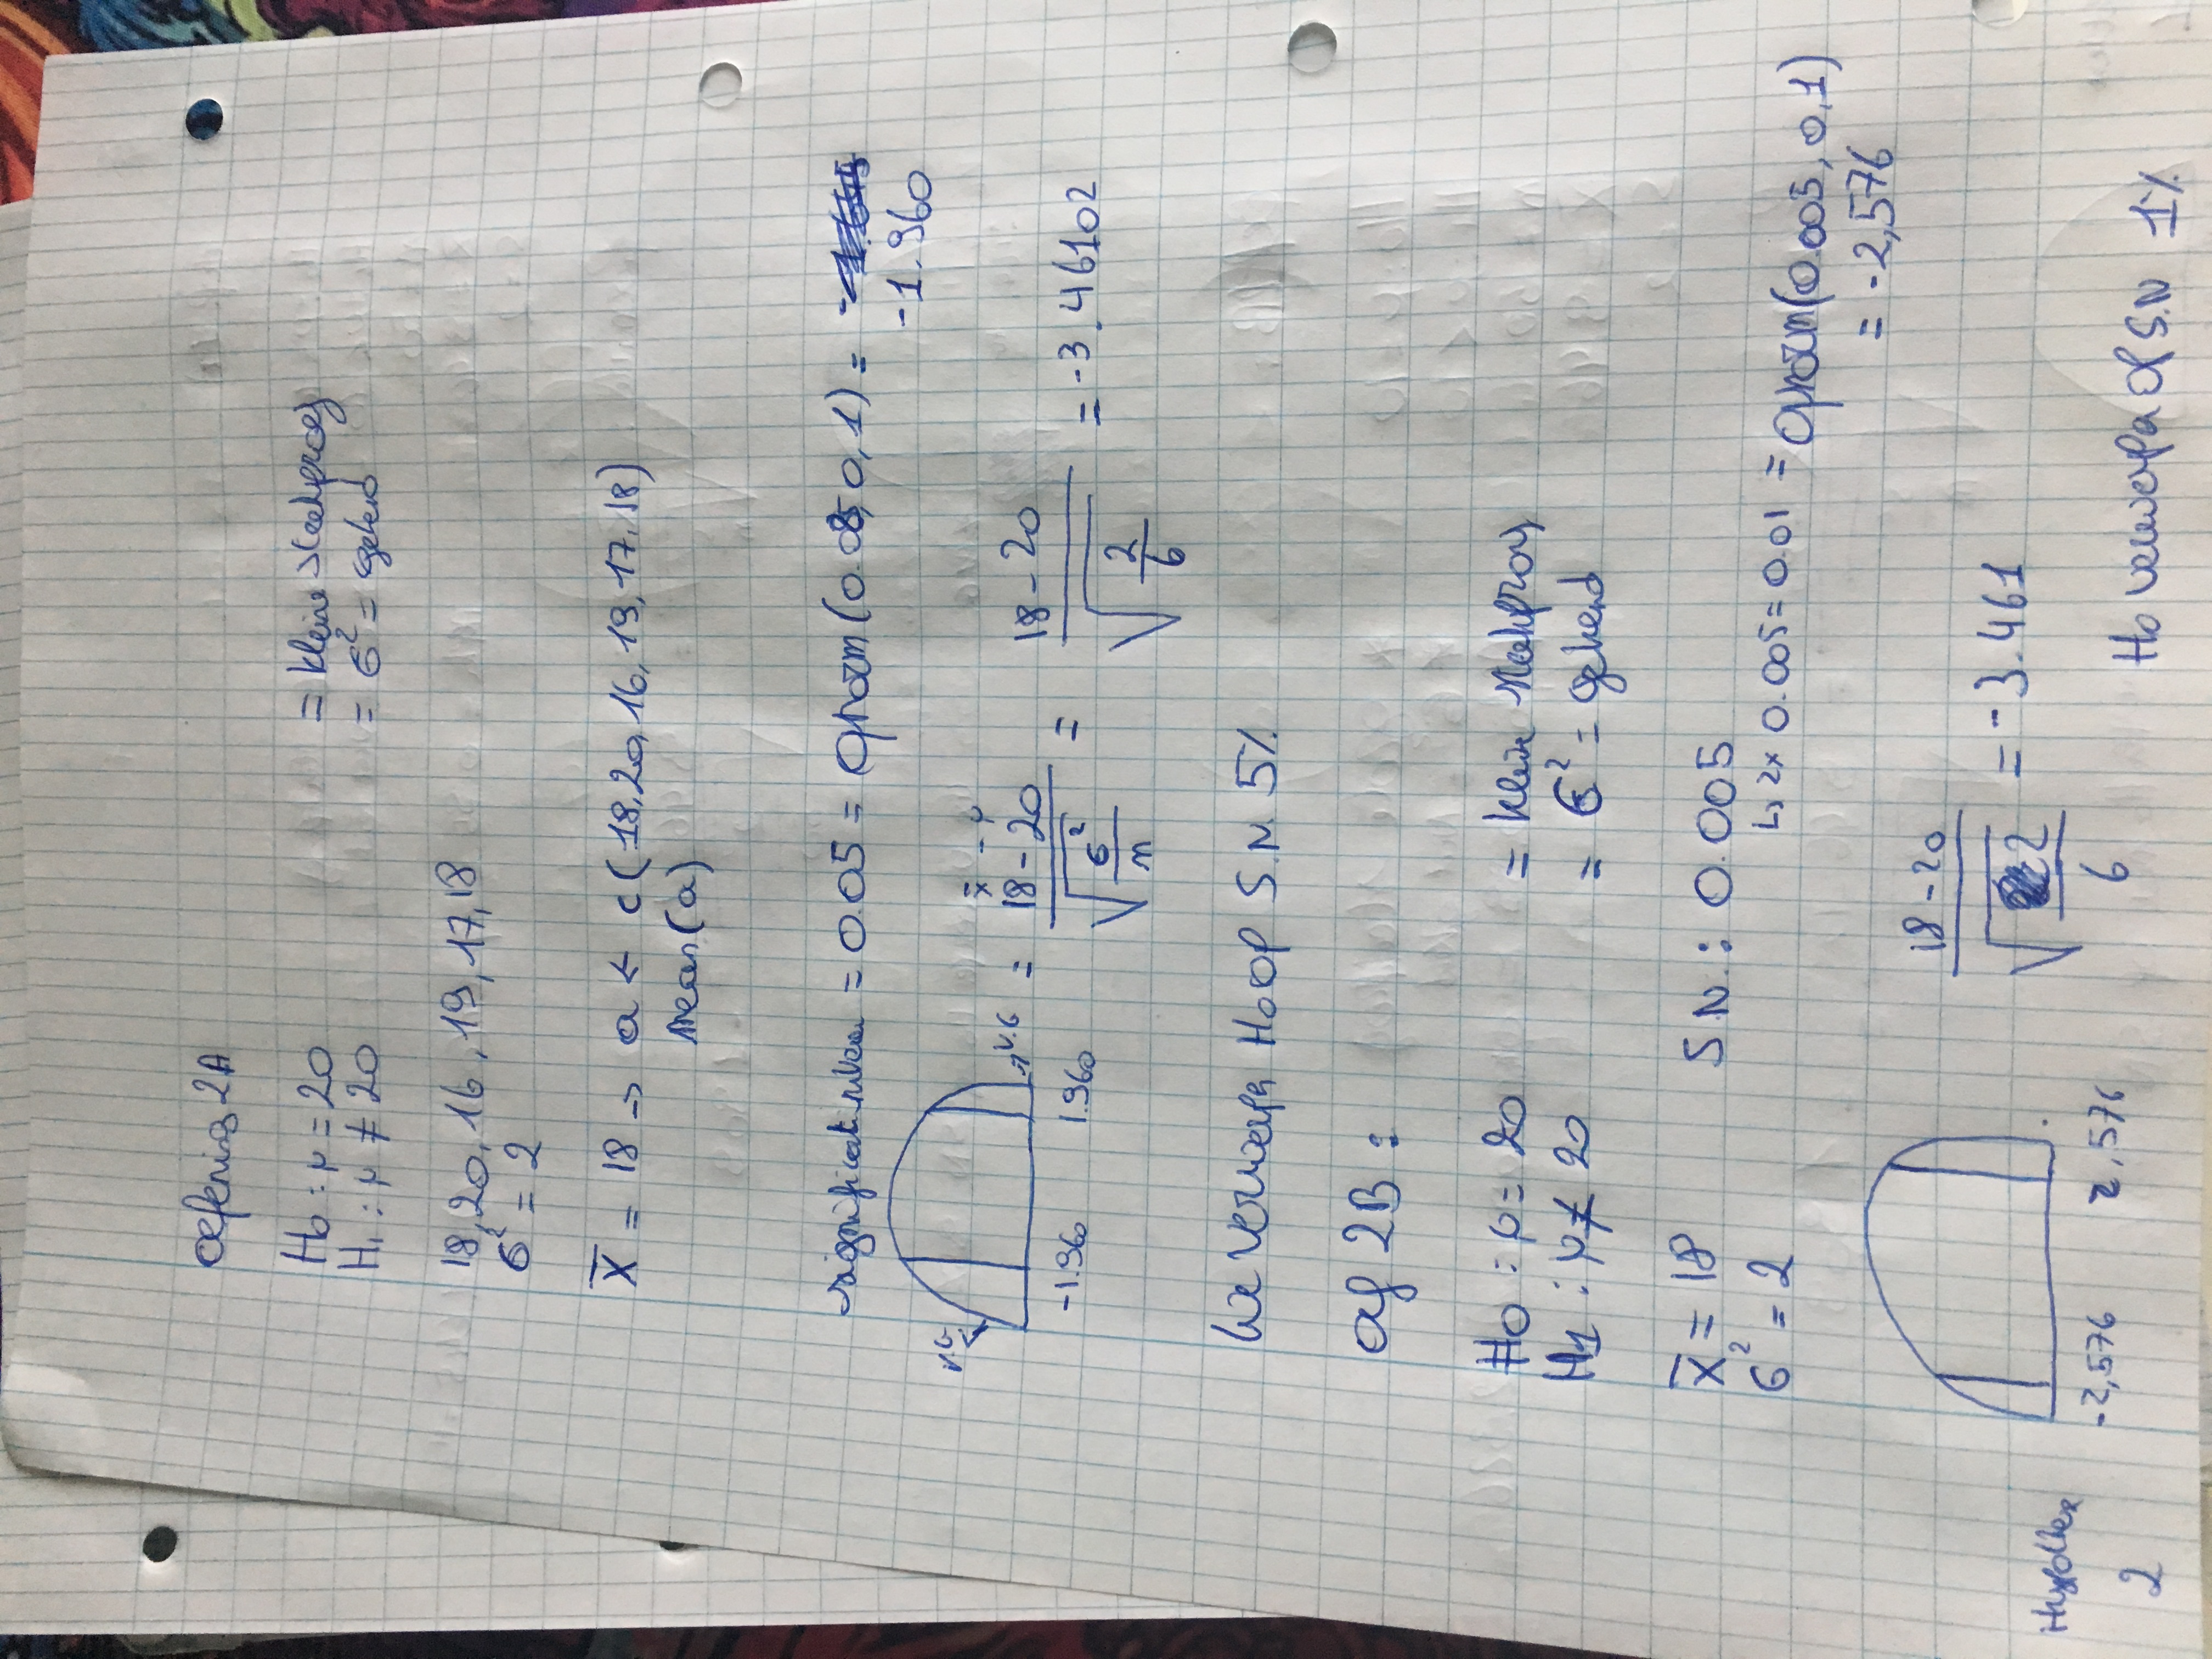 Oefening 2A
H0 : μ = 20 = kleine steekproef
H1 : μ ≠ 20 = σ² = gekend
18, 20, 16, 19, 17, 18
σ² = 2
X̄ = 18 → a ← c(18,20,16,19,17,18)
mean(a)
= 0.05 = qnorm(0.05, 0, 1) =
-1.960
V.G V.G
-1.960 1.960
x̄ - μ
= 18-20 / √(σ²/n) = 18-20 / √(2/6) = -3.46102
We verwerpen H0 op S.N. 5%
Oef 2B :
H0 : μ = 20 = kleine steekproef
H1 : μ ≠ 20 = σ² = gekend
X̄ = 18 S.N. : 0.005
σ² = 2 ↳ 2x 0.005 = 0.01 = qnorm(0.005, 0, 1)
= -2,576
18-20 / √(2/6) = -3.461
-2,576 2,576
2
H0 verwerpen op S.N 1%